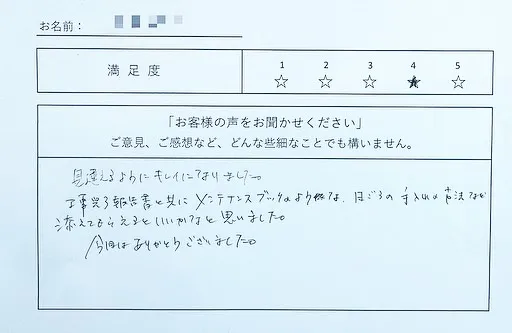 お名前：
満足度
1 2 3 4 5
「お客様の声をお聞かせください」
ご意見、ご感想など、どんな些細なことでも構いません。
見違えるようにキレイになりました。
工事完了報告書と共にメンテナンスブックのような、日ごろの手入れの方法など
添えてもらえるといいかなと思いました。
今回はありがとうございました。